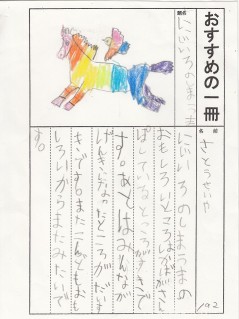 おすすめの一冊
題名
にじいろのしまうま
名前
さとうさいや
にじいろのしまうまの
おもしろいところはかばがさん
ぱしているところがすきで
す。あとはみんなが
げんきになったところがだいす
きです。またこんどもおも
しろいからまたみたいで
す。